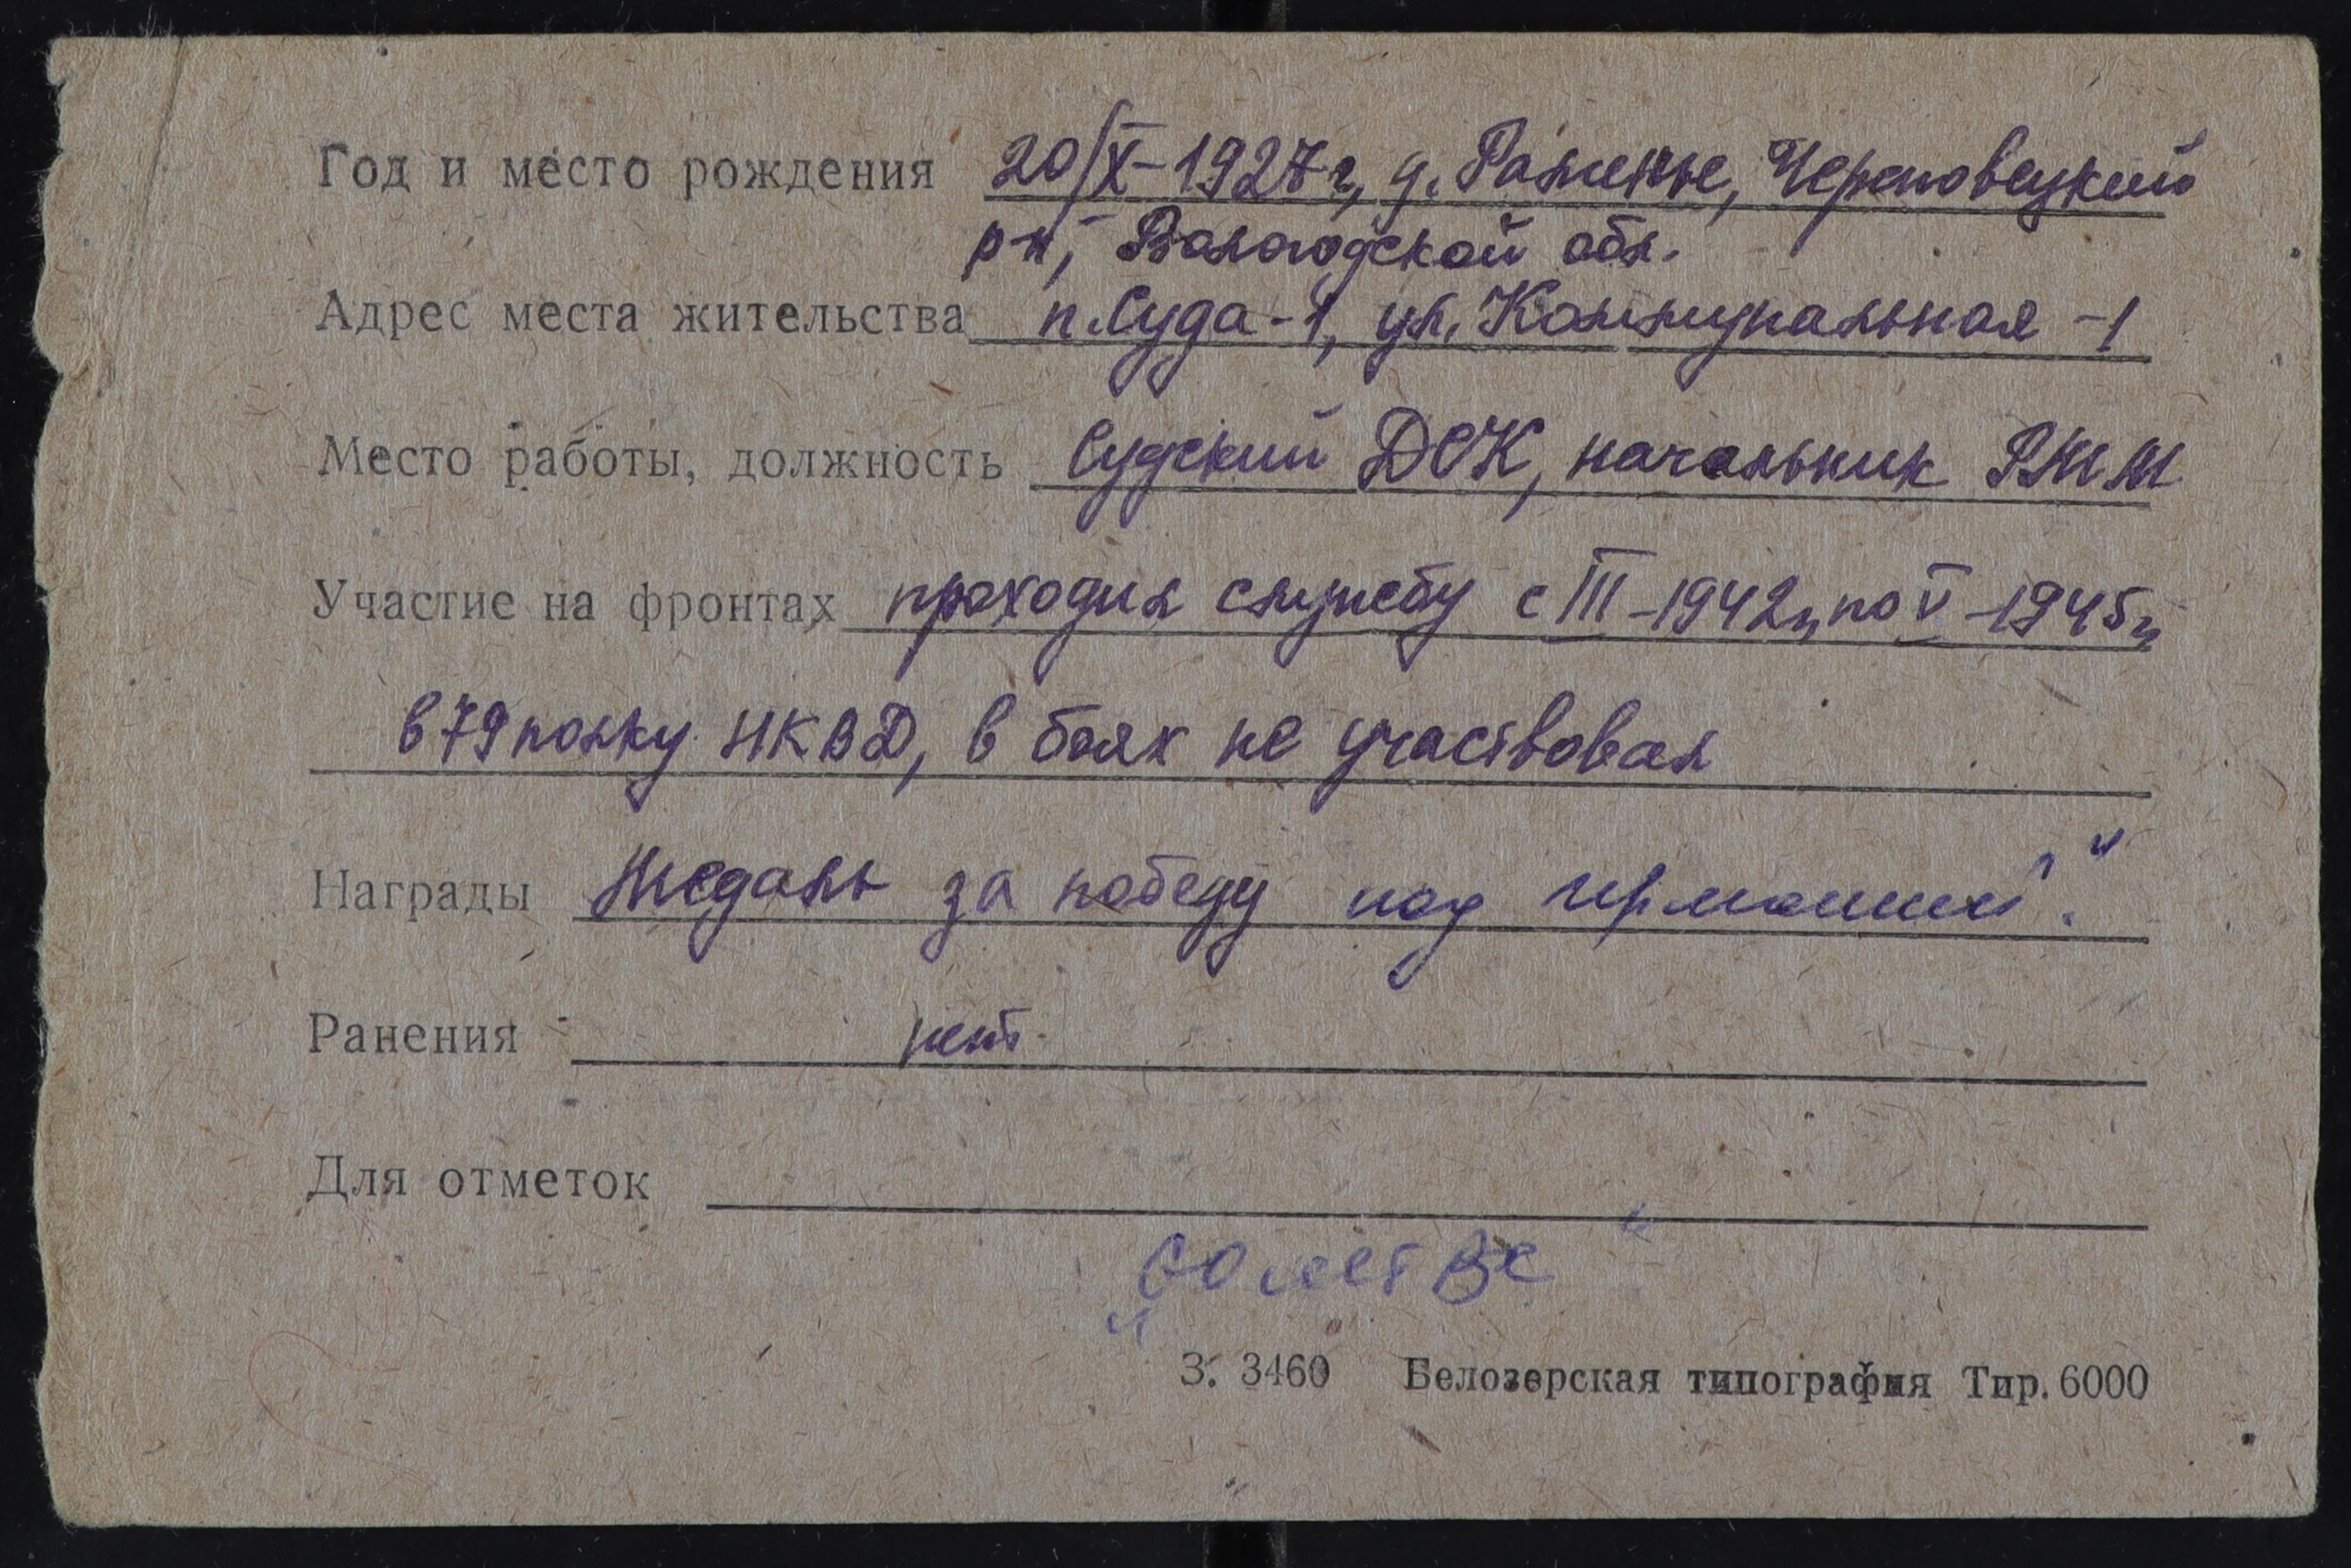 Год и место рождения 20/X-1927 г, д. Раменье, Череповецкий
р-н, Вологодской обл.
Адрес места жительства п. Суда-1, ул. Коммунальная -1
Место работы, должность Судский ДОК, начальник РММ
Участие на фронтах проходил службу с III-1942г, по V-1945г,
в 79 полку НКВД, в боях не участвовал
Награды Медаль за победу над германией".
Ранения нет
Для отметок
„60 лет ВС"
З. 3460 Белозерская типография Тир. 6000